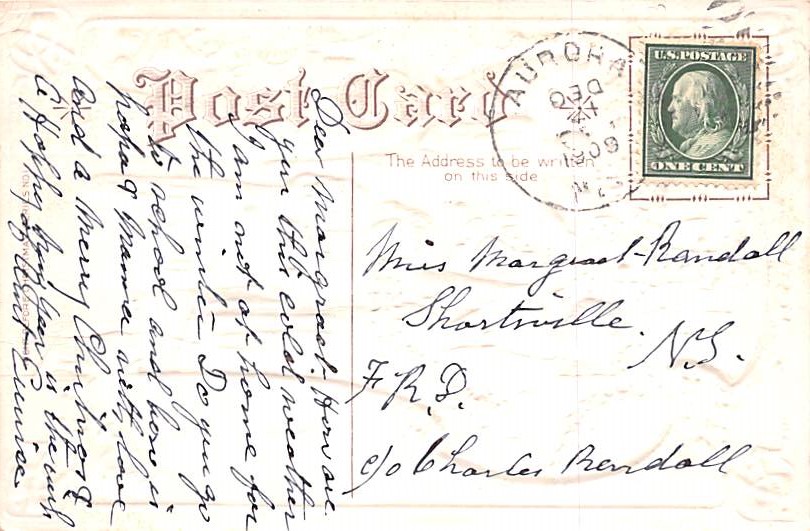 Post Card
The Address to be written
on this side
AURORA
DEC
24
09
U.S. POSTAGE
ONE CENT
Dear Margraet. How are
you this cold weather
I am not at home for
the winter Do you go
to school and how is
papa & Mama with love
and a Merry Christmas &
a Happy New Year is the wish
of Aunt Eunice
Miss Margraet Randall
Shortsville.
N.Y.
F.R.D.
c/o Charles Randall